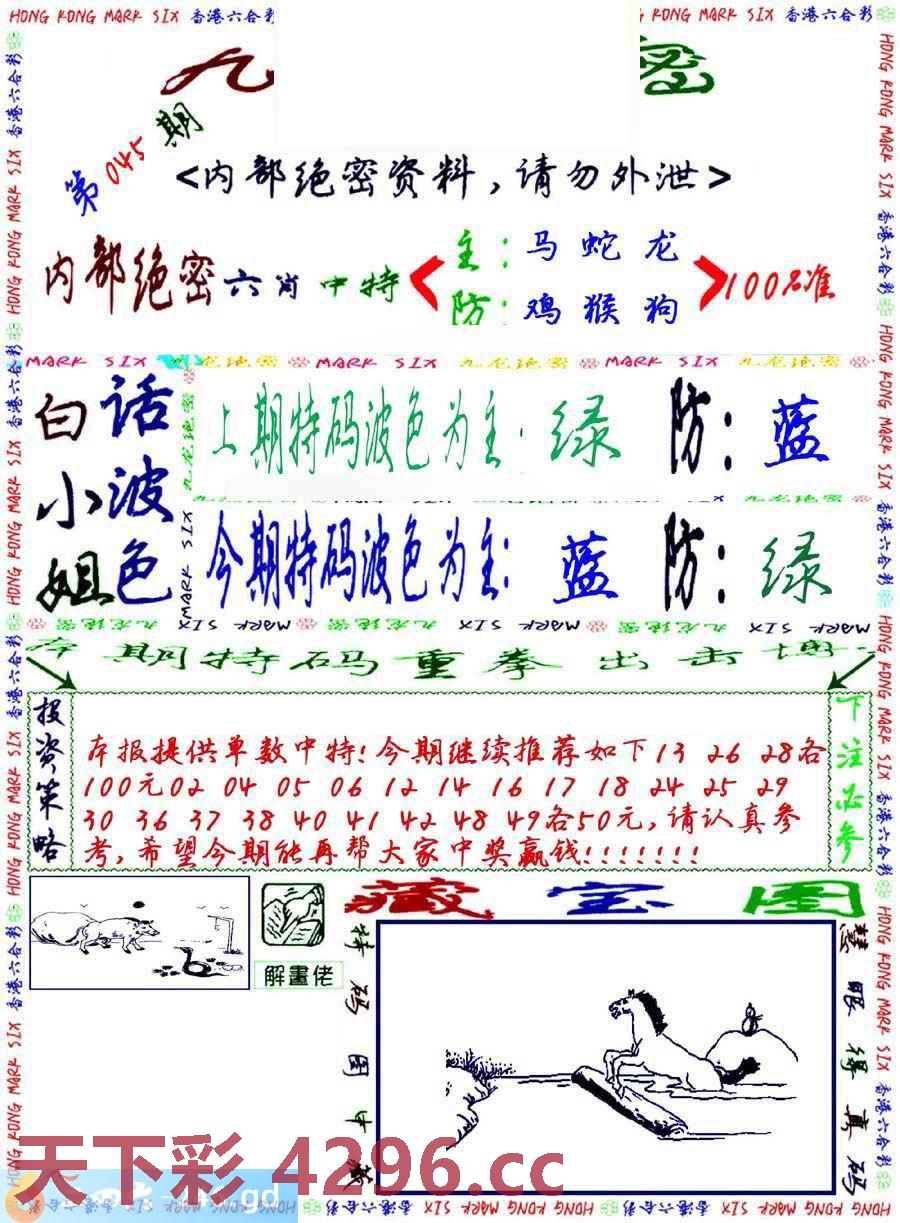 HONG KONG MARK SIX 香港六合彩
九 密
第045期
<内部绝密资料,请勿外泄>
内部绝密六肖中特
主:马蛇龙
防:鸡猴狗
100%准
MARK SIX 九龙绝密 MARK SIX 九龙绝密 MARK SIX 九龙绝密
白话小波姐色
上期特码波色为主:绿 防:蓝
今期特码波色为主:蓝 防:绿
本期特码重拳出击
投资策略
本报提供单数中特!今期继续推荐如下13 26 28各
100元02 04 05 06 12 14 16 17 18 24 25 29
30 36 37 38 40 41 42 48 49各50元,请认真参
考,希望今期能再帮大家中奖赢钱!!!!!!!
下注必参
解畫佬
藏宝图
特码图中藏
慧眼得真码
天下彩4296.cc
gd